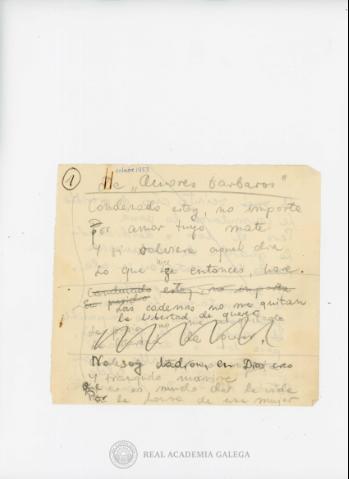 1
De "Amores barbaros"
Condenado estoy, no importa
Por amor tuyo mate
Y si volviera aquel dia
Lo que hice entonces, hare.
Condenado estoy, no importa
Las cadenas no me quitan
la libertad de querer
No soy ladron, en Dios creo
Y tranquilo
la vida
Por la honra de una mujer
REAL ACADEMIA GALEGA